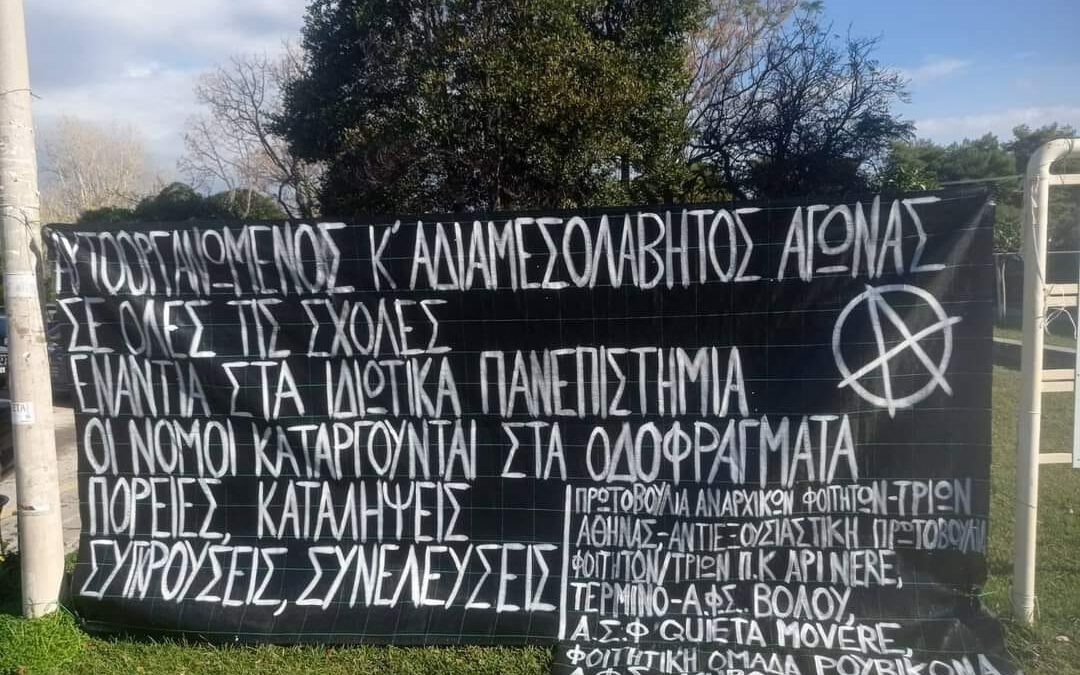 ΑΥΤΟΟΡΓΑΝΩΜΕΝΟΣ Κ' ΑΔΙΑΜΕΣΟΛΑΒΗΤΟΣ ΑΓΩΝΑΣ
ΣΕ ΟΛΕΣ ΤΙΣ ΣΧΟΛΕΣ
ΕΝΑΝΤΙΑ ΣΤΑ ΙΔΙΩΤΙΚΑ ΠΑΝΕΠΙΣΤΗΜΙΑ
ΟΙ ΝΟΜΟΙ ΚΑΤΑΡΓΟΥΝΤΑΙ ΣΤΑ ΟΔΟΦΡΑΓΜΑΤΑ
ΠΟΡΕΙΕΣ, ΚΑΤΑΛΗΨΕΙΣ
ΣΥΓΚΡΟΥΣΕΙΣ, ΣΥΝΕΛΕΥΣΕΙΣ
ΠΡΩΤΟΒΟΥΛΙΑ ΑΝΑΡΧΙΚΩΝ ΦΟΙΤΗΤΩΝ-ΤΡΙΩΝ
ΑΘΗΝΑΣ,-ΑΝΤΙΕΞΟΥΣΙΑΣΤΙΚΗ ΠΡΩΤΟΒΟΥΛΙΑ
ΦΟΙΤΗΤΩΝ/ΤΡΙΩΝ Π.Κ ARINERE,
ΤΕΡΜΙΝΟ-Α.Φ.Σ. ΒΟΛΟΥ,
Α.Σ.Φ QUIETA MOVERE,
ΦΟΙΤΗΤΙΚΗ ΟΜΑΔΑ ΡΟΥΒΙΚΩΝΑ